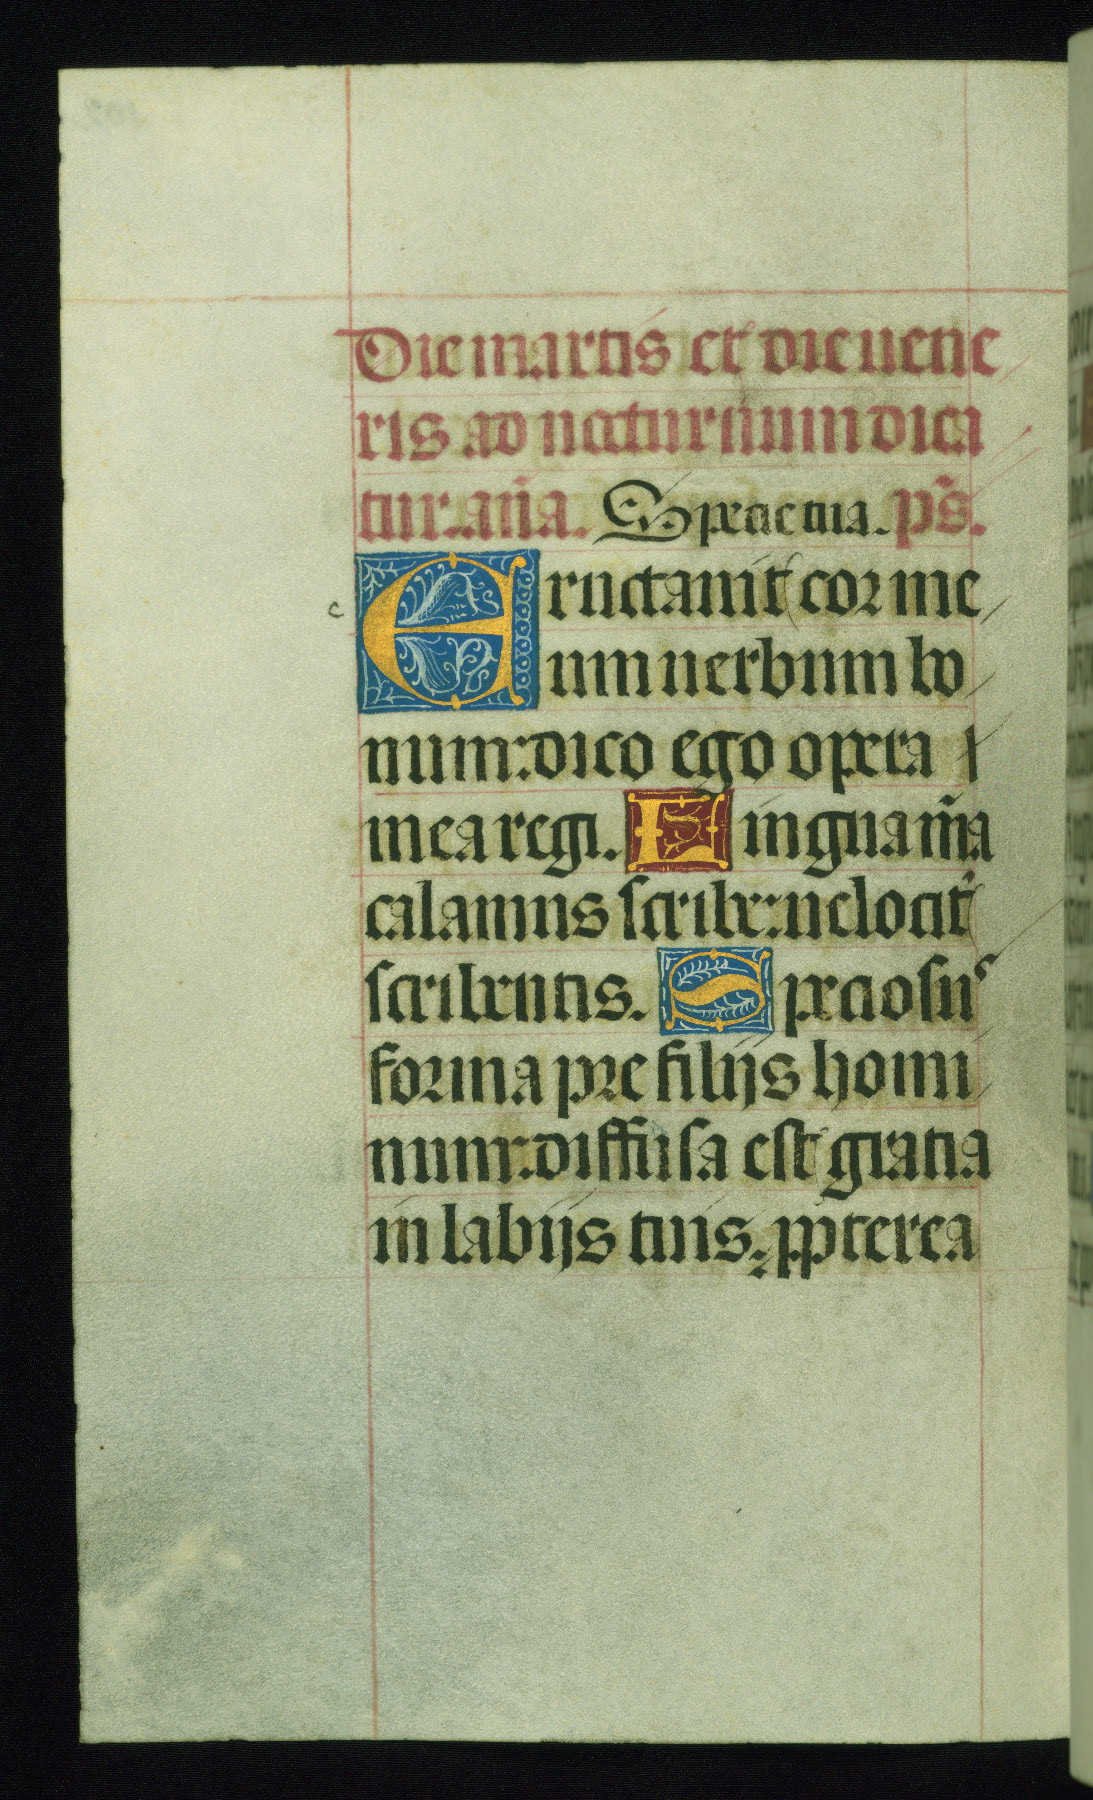 Die martis et die uene
ris ad nocturnum dica
tur. an̄a. Specie tua. ps̄.
Eructauit cor me
c
um uerbum bo
num: dico ego opera
mea regi. Lingua m̄a
calamus scribe: uelocit̾
scribentis. Speciosus
forma pre filijs homi
num: diffusa est gratia
in labijs tuis, ꝓpterea